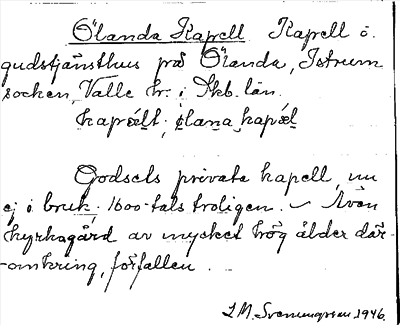 Ölanda Kapell Kapell o.
gudstjänsthus på Ölanda, Istrum
socken, Valle hr. i Skb. län.
kapælt; ølana kapæl
Godsets privata kapell, nu
ej i bruk. 1600-tals troligen. – Även
kyrkogård av mycket hög ålder där-
omkring, förfallen.
1946.